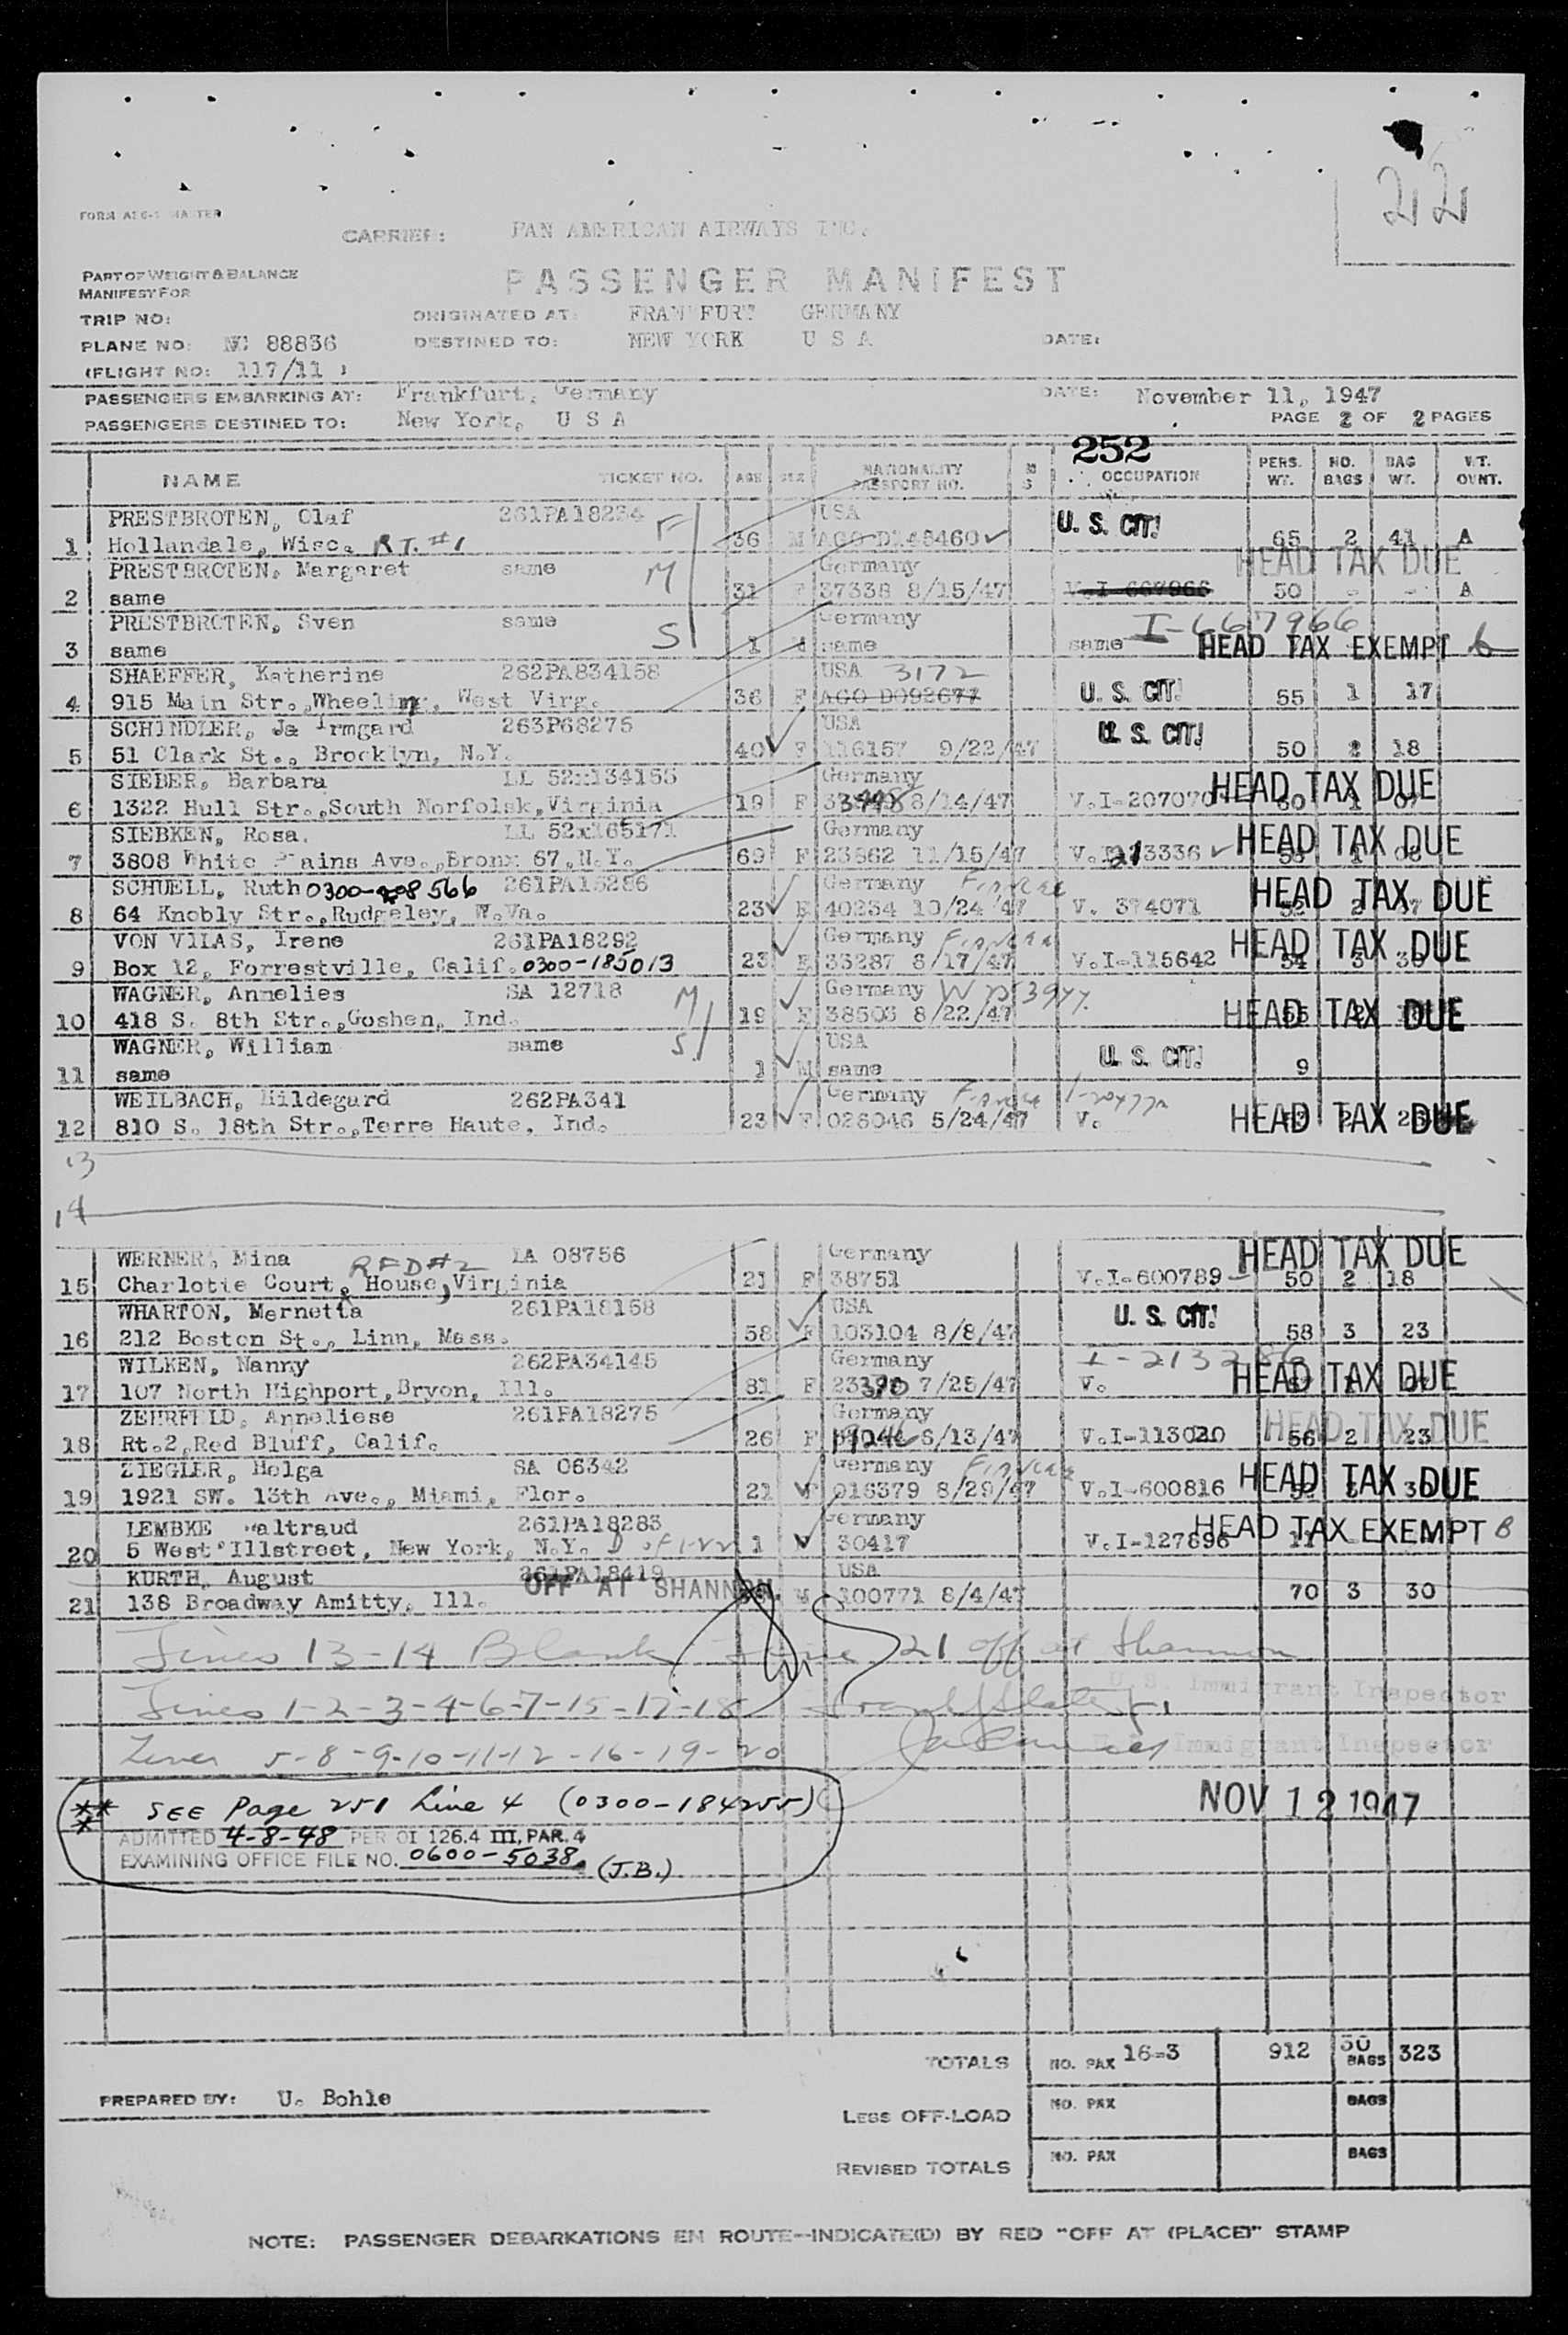 22
FORM
CARRIER: PAN AMERICAN AIRWAYS INC.
PART OF WEIGHT & BALANCE
MANIFEST FOR
PASSENGER MANIFEST
TRIP NO: ORIGINATED AT: FRANKFURT GERMANY
PLANE NO: NC 88836 DESTINED TO: NEW YORK U S A DATE:
(FLIGHT NO: 117/11 )
PASSENGERS EMBARKING AT: Frankfurt, Germany DATE: November 11, 1947
PASSENGERS DESTINED TO: New York, U S A PAGE 2 OF 2 PAGES
252
NAME TICKET NO. AGE SEX NATIONALITY PASSPORT NO. OCCUPATION PERS. WT. NO. BAGS BAG WT. WT. OVNT.
PRESTBROTEN, Olaf 261PA18234 F USA U. S. CIT!
1 Hollandale, Wisc. RT. #1 36 M AGO 65 2 41 A
PRESTBROTEN, Margaret same M Germany HEAD TAX DUE
2 same 31 F 37338 8/15/47 50 - - A
PRESTBROTEN, Sven same S Germany I-667966
3 same 1 M same same HEAD TAX EXEMPT b
SHAEFFER, Katherine 262PA834158 USA 3172
4 915 Main Str., Wheeling, West Virg. 36 F AGO D092677 U. S. CIT! 55 1 17
SCHINDLER, Irmgard 263P68275 USA
5 51 Clark St., Brooklyn, N.Y. 40 F 116157 9/22/47 U. S. CIT! 50 2 18
SIEBER, Barbara LL Germany HEAD TAX DUE
6 1322 Hull Str., South Norfolsk, Virginia 19 F 8/14/47 V.I-207070
SIEBKEN, Rosa. LL 52x165171 Germany HEAD TAX DUE
7 3808 White Plains Ave., Bronx 67, N.Y. 69 F 23862 11/15/47
SCHUELL, Ruth 261PA18286 Germany HEAD TAX DUE
8 64 Knobly Str., Rudgeley, W.Va. 23 F 40234 10/24/47 V. 374071
VON VILAS, Irene 261PA18292 Germany HEAD TAX DUE
9 Box 12, Forrestville, Calif. 0300-185013 23 F 33287 8/17/47 V.I-115642 54 3
WAGNER, Annelies SA 12718 M Germany
10 418 S. 8th Str., Goshen, Ind. 19 F 38503 8/22/47 HEAD TAX DUE
WAGNER, William same S. USA
11 same 1 M same U. S. CIT! 9
WEILBACH, Hildegard 262PA341 Germany
12 810 S. 18th Str., Terre Haute, Ind. 23 F 026046 5/24/47 V. HEAD TAX DUE
13
14
WERNER, Mina RFD#2 LA 08756 Germany HEAD TAX DUE
15 Charlotte Court, House, Virginia 21 F 38751 V.I-600789 50 2 18
WHARTON, Mernetta 261PA18168 USA
16 212 Boston St., Linn, Mass. 58 F 103104 8/8/47 U. S. CIT! 58 3 23
WILKEN, Nanny 262PA34145 Germany
17 107 North Highport, Bryon, Ill. 81 F 7/25/47 V. HEAD TAX DUE
ZEHRFELD, Anneliese 261PA18275 Germany HEAD TAX DUE
18 Rt.2, Red Bluff, Calif. 26 F 8/13/47 V.I-113020 56 2 23
ZIEGLER, Helga SA 06342 Germany
19 1921 SW. 13th Ave., Miami, Flor. 21 F 016379 8/29/47 V.I-600816 HEAD TAX DUE
LEMBKE Waltraud 261PA18283 Germany HEAD TAX EXEMPT B
20 5 West Illstreet, New York, N.Y. 1 30417 V.I-127696 11
KURTH, August 261PA18419 USA
OFF AT SHANNON.
21 138 Broadway Amitty, Ill. M 100771 8/4/47 70 3 30
Lines 13-14 Blank Line 21 off at Shannon
U. S. Immigrant Inspector
Lines 1-2-3-4-6-7-15-17-18
U. S. Immigrant Inspector
Lines 5-8-9-10-11-12-16-19-20
NOV 12 1947
*** SEE Page 251 Line 4 (0300-184255)
ADMITTED 4-8-48 PER OI 126.4 III, PAR. 4
EXAMINING OFFICE FILE NO. 0600-5038. (J.B.)
TOTALS NO. PAX 16-3 912 30 BAGS 323
PREPARED BY: U. Bohle
LESS OFF-LOAD NO. PAX BAGS
REVISED TOTALS NO. PAX BAGS
NOTE: PASSENGER DEBARKATIONS EN ROUTE--INDICATE(D) BY RED "OFF AT (PLACE)" STAMP